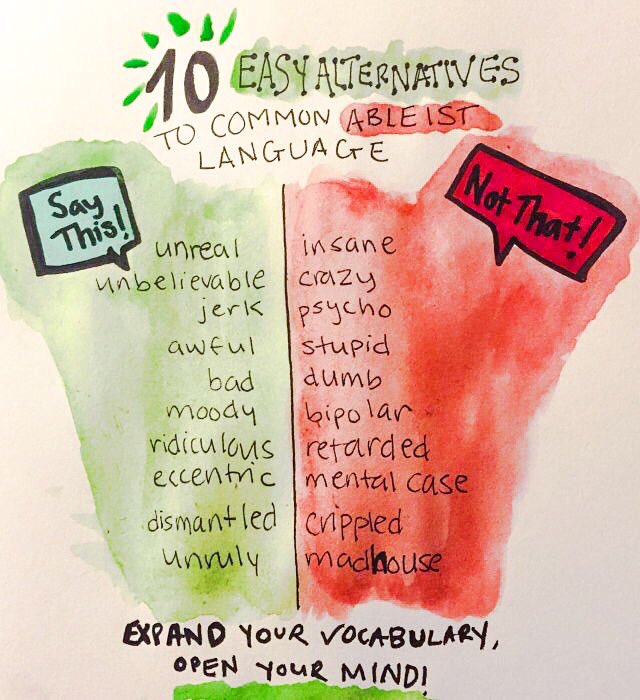 10 EASY ALTERNATIVES
TO COMMON ABLEIST
LANGUAGE
Say
This!
Not That!
unreal insane
unbelievable crazy
jerk psycho
awful stupid
bad dumb
moody bipolar
ridiculous retarded
eccentric mental case
dismantled crippled
unruly madhouse
EXPAND YOUR VOCABULARY,
OPEN YOUR MIND!